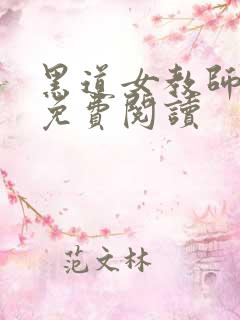 黑道女教師
免費閱讀
范文林